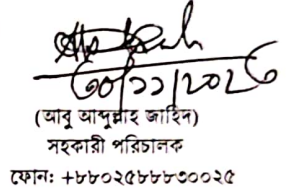 ৩০/১১/২০২৫
(আবু আব্দুল্লাহ জাহিদ)
সহকারী পরিচালক
ফোন: +৮৮০২৫৮৮৮৩০০২৫